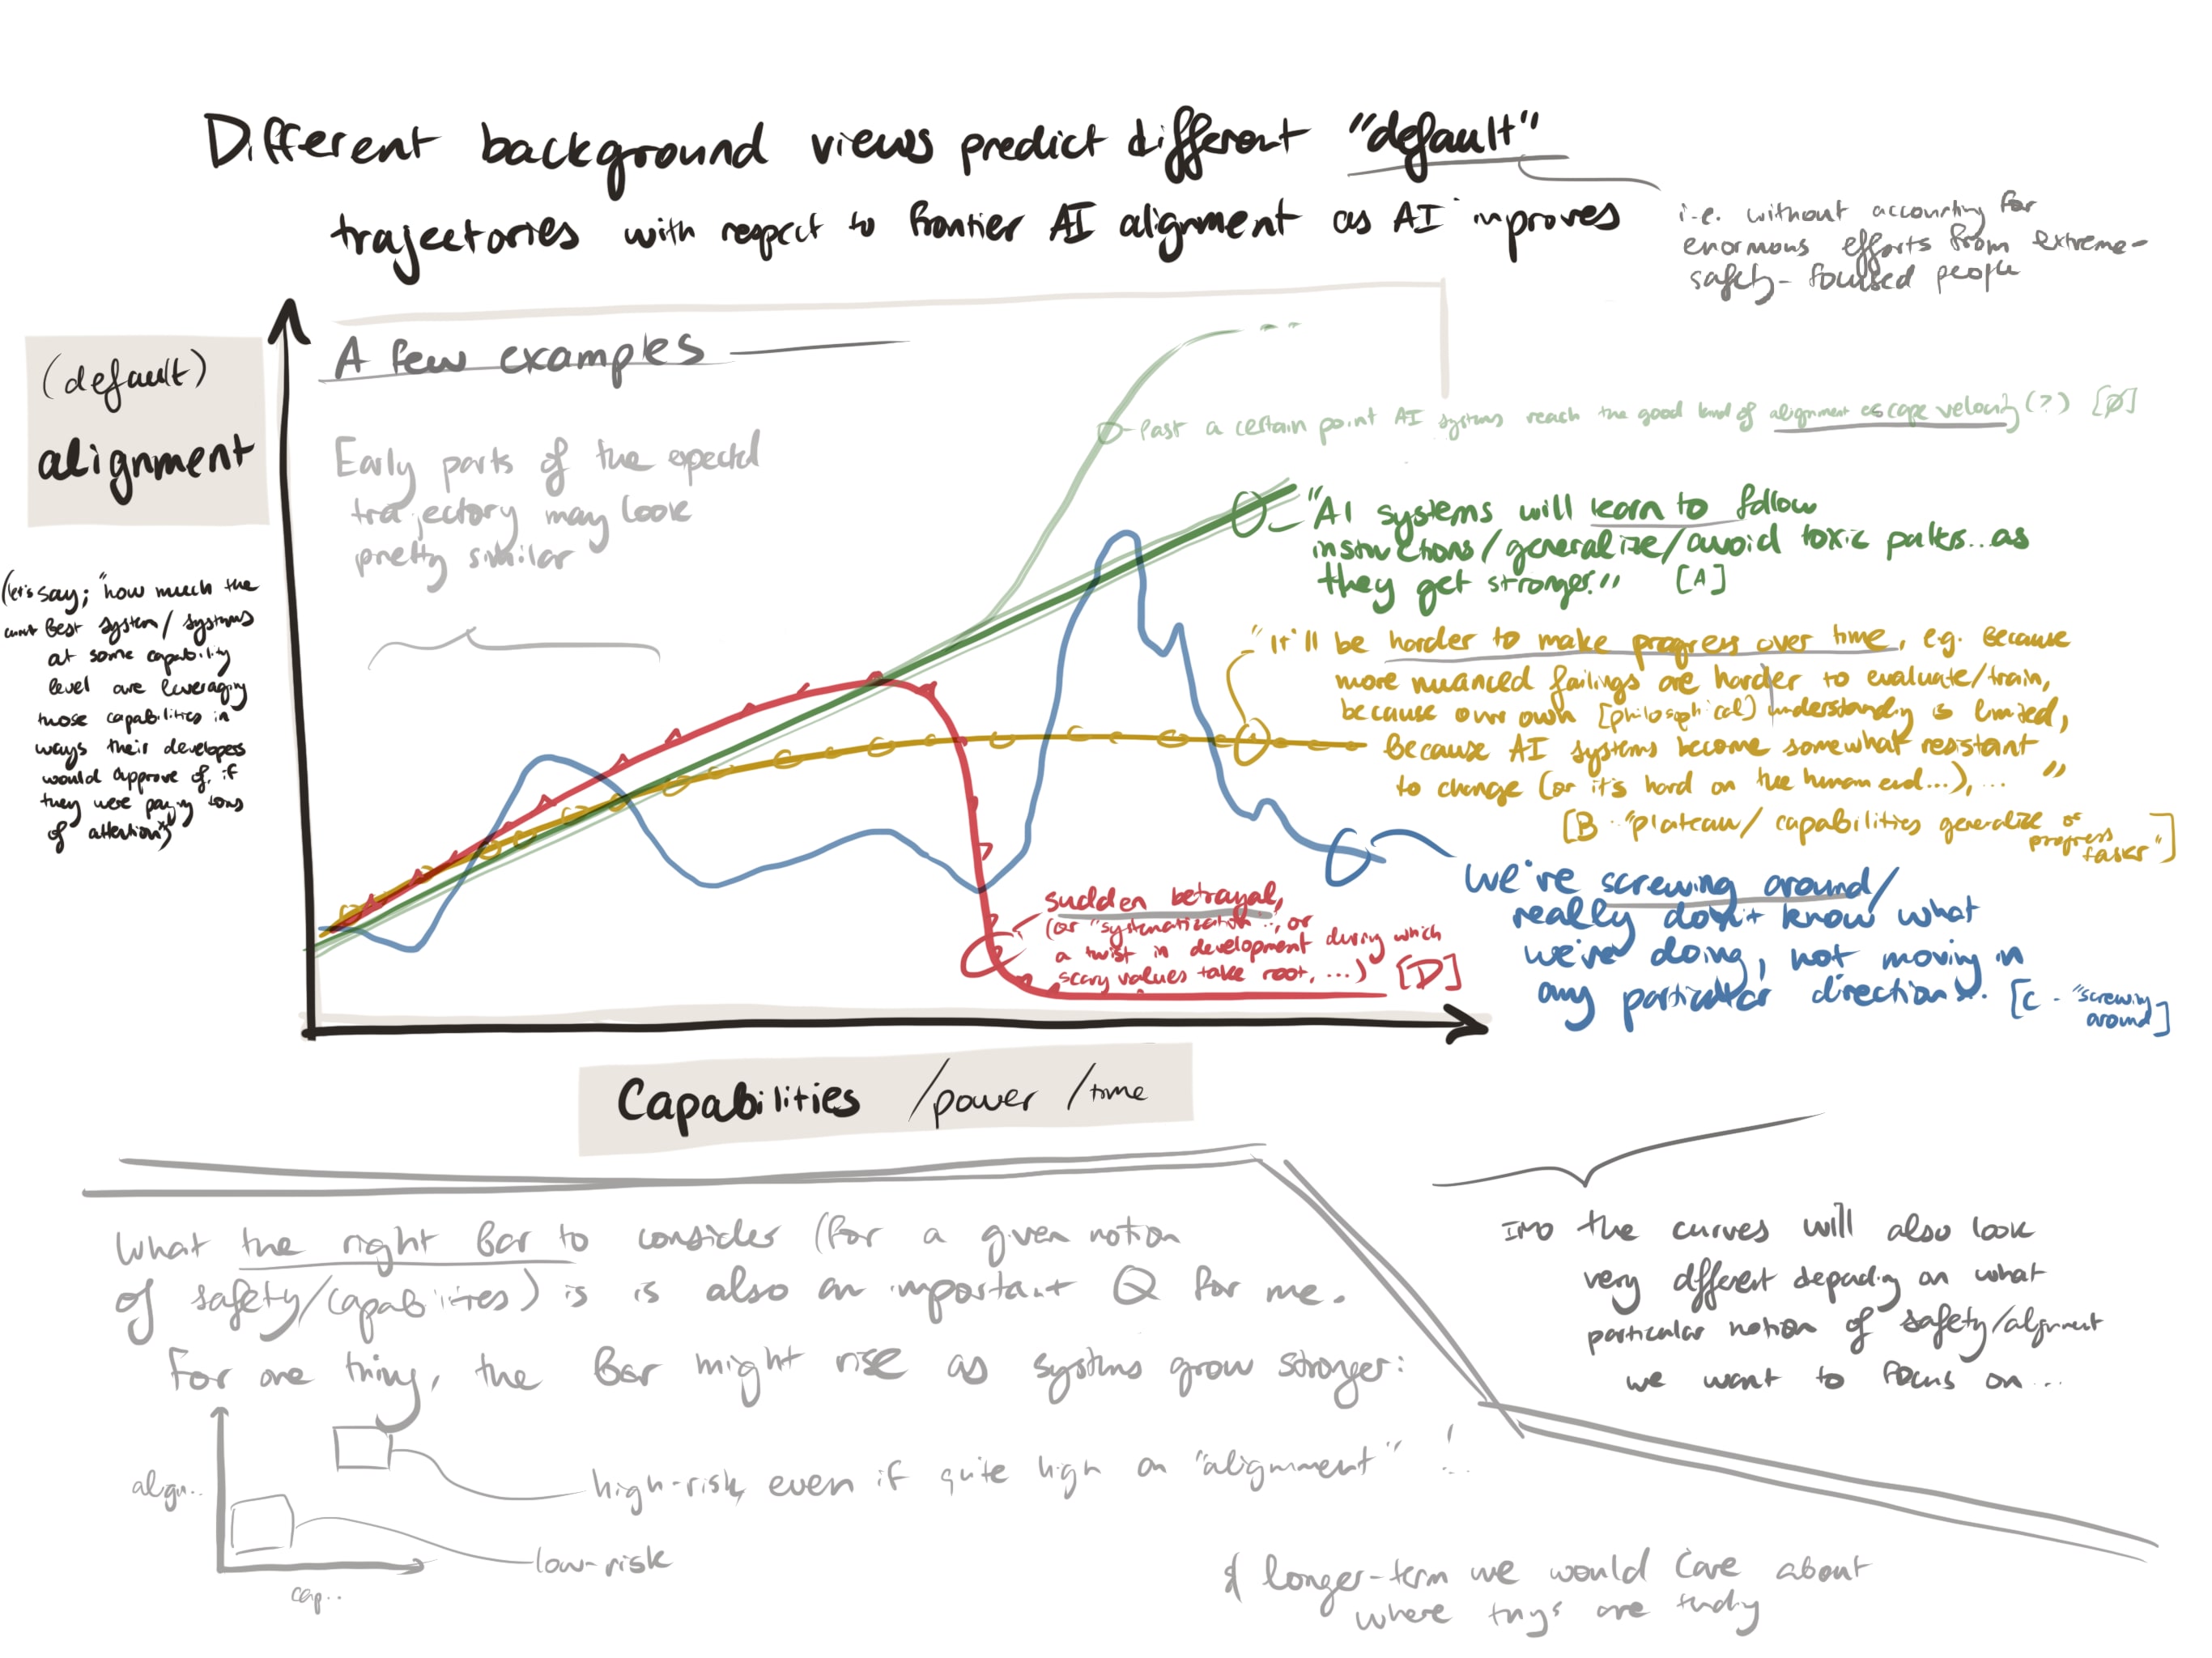 Different background views predict different "default"
trajectories with respect to frontier AI alignment as AI improves
i.e. without accounting for
enormous efforts from extreme-
safety-focused people
(default)
alignment
(let's say; "how much the
current best system/systems
at some capability
level are leveraging
those capabilities in
ways their developers
would approve of, if
they were paying tons
of attention")
A few examples
Early parts of the expectd
trajectory may look
pretty similar
Past a certain point AI systems reach the good kind of alignment escape velocity (?) [Ø]
"AI systems will learn to follow
instructions/generalize/avoid toxic patters... as
they get stronger." [A]
"It'll be harder to make progress over time, e.g. Because
more nuanced failings are harder to evaluate/train,
because our own [philosophical] understanding is limited,
Because AI systems become somewhat resistant
to change (or it's hard on the human end...),... "
[B - "plateau/ capabilities generalize or
progress
faster"]
We're screwing around/
really don't know what
we're doing, not moving in
any particular direction. [C - "screwing
around]
sudden betrayal,
(or "systematization", or
a twist in development during which
scary values take root, ...) [D]
Capabilities /power /time
IMO the curves will also look
very different depending on what
particular notion of safety/alignment
we want to focus on...
What the right Bar to consider (for a given notion
of safety/capabilities) is is also an important Q for me.
For one thing, the Bar might rise as systems grow stronger:
align..
high-risk even if quite high on "alignment" !
low-risk
cap..
& longer-term we would care about
where are